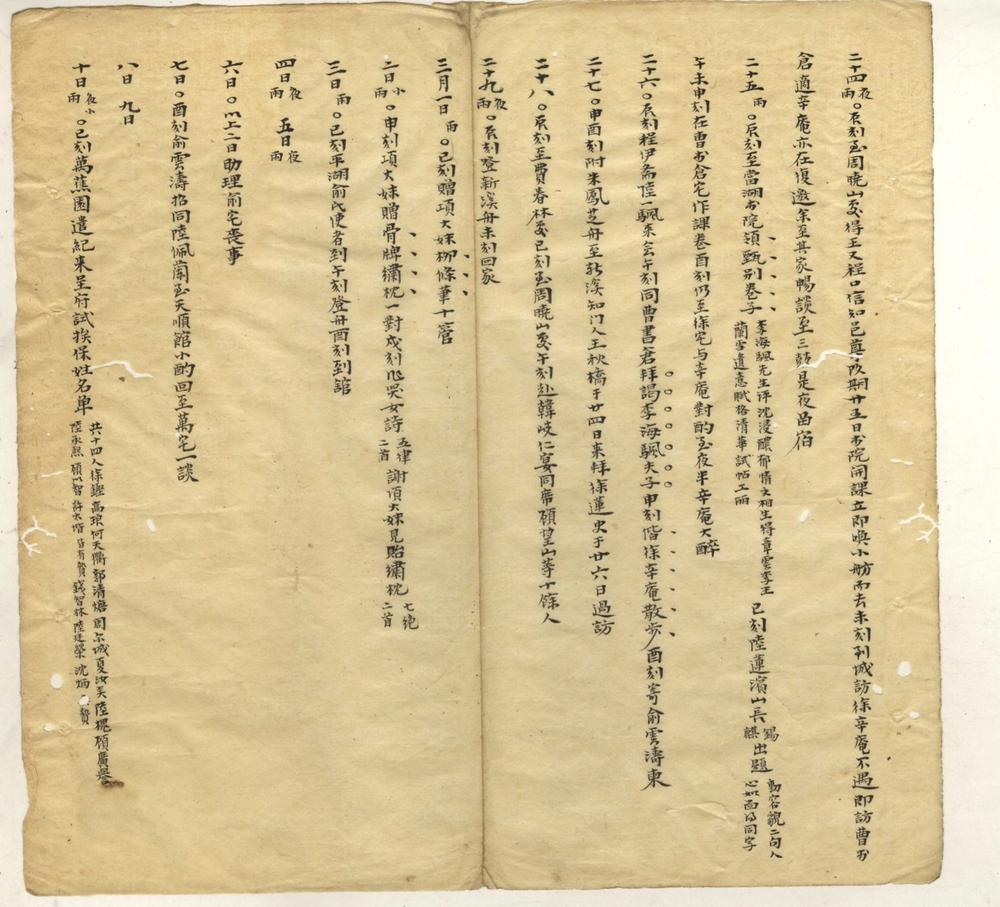 二十四夜雨○辰刻至周曉山處得王又程口信知邑尊改期廿五日書院開課立即喚小舫而去未刻到城訪徐辛庵不遇即訪曹書
倉適辛庵亦在復邀余至其家暢談至三鼓是夜留宿
二十五雨○辰刻至當湖書院領甄別卷子李海颿先生評沈浸醲郁情文相生將章雲李王蘭雪遺意賦格清華試帖工丽 巳刻陸蓮濱山長錫麒出題動容貌二句人心如面得同字
午未申刻在曹書倉宅作課卷酉刻仍至徐宅与辛庵對酌至夜半辛庵大醉
二十六○辰刻程伊斋陸一颿来会午刻同曹書倉拜謁李海颿夫子申刻偕徐辛庵散步酉刻寄俞雲濤柬
二十七○申酉刻附朱鳳芝舟至新溪知门人王秋橋于廿四日来拜徐蓮史于廿六日過訪
二十八○辰刻至賈春林處巳刻至周曉山處午刻赴韓岐仁宴同席顧望山等十餘人
二十九夜雨○辰刻登新溪舟未刻回家
三月一日雨○巳刻贈項大妹柳條筆十管
二日小雨○申刻項大妹贈骨牌繡枕一對戌刻作哭女詩五律二首謝項大妹見貽繡枕七绝二首
三日雨○巳刻平湖俞氏使者到午刻登舟酉刻到館
四日夜雨 五日夜雨
六日○以上二日助理俞宅喪事
七日○酉刻俞雲濤招同陸佩蘭至天順館小酌回至萬宅一談
八日 九日
十日夜小雨○巳刻萬蕉園遣紀来呈府試挨保姓名单共十四人徐鏓高琅何天衢郭清塘周尔城夏汝英陸槐顧廣譽陸永熙顧以智許大增皆有贄錢智林陸廷榮沈炳贄